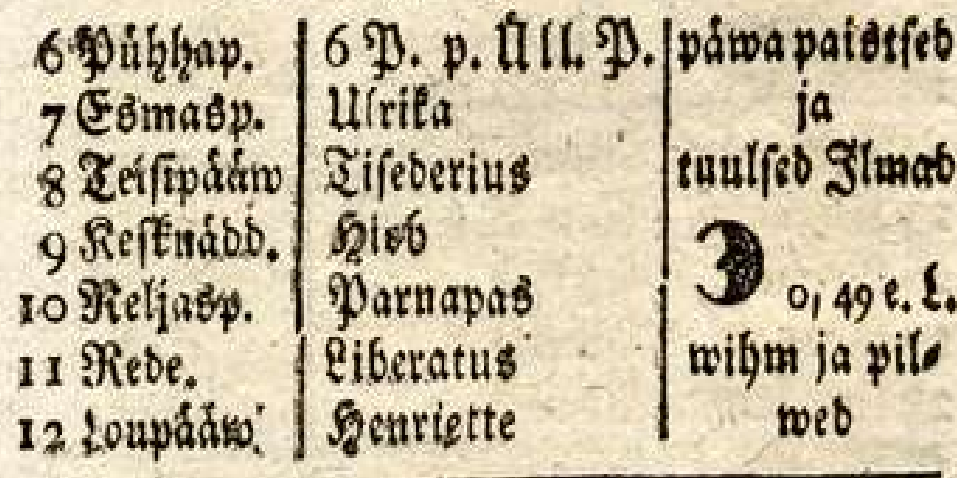 6 Pühhap. 6 P. p. Üll. P. päwa paistsed
7 Esmasp. Ulrika ja
8 Teisipääw Tisederius tuulsed Ilmad
9 Kesknädd. Hiob
10 Neljasp. Parnapas 0, 49 e. L.
11 Rede. Liberatus wihm ja pil-
12 Loupääw. Henriette wed